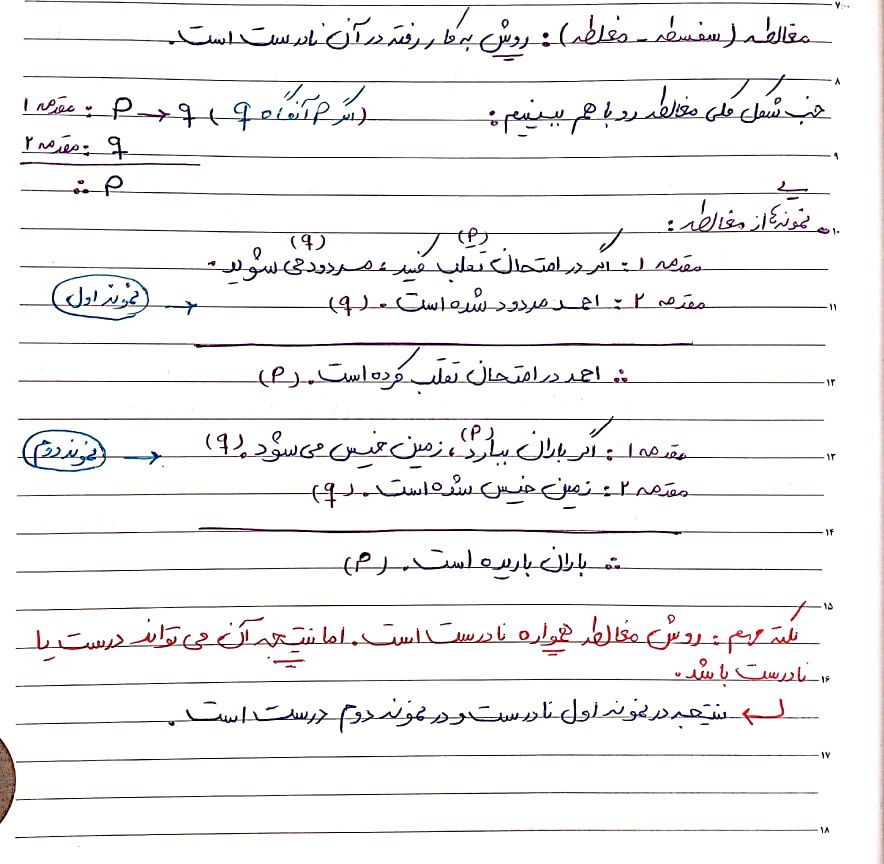 ۷:۰۰
مغالطه (سفسطه - مغلطه) : روش به کار رفته در آن نادرست است.
۸
خب شکل کلی مغالطه رو با هم ببینیم :
مقدمه ۱ : p → q (اگر p آنگاه q)
مقدمه ۲ : q
۹
∴ p
نمونه‌هایی از مغالطه :
۱۰
(p) (q)
مقدمه ۱ : اگر در امتحان تقلب کنید ، مردود می شوید.
مقدمه ۲ : احمد مردود شده است. (q) → نمونه اول
۱۱
∴ احمد در امتحان تقلب کرده است. (p)
۱۲
مقدمه ۱ : اگر باران ببارد (p) ، زمین خیس می شود. (q) → نمونه دوم
۱۳
مقدمه ۲ : زمین خیس شده است. (q)
۱۴
∴ باران باریده است. (p)
۱۵
نکته مهم : روش مغالطه همواره نادرست است. اما نتیجه آن می تواند درست یا
نادرست باشد.
۱۶
نتیجه در نمونه اول نادرست و در نمونه دوم درست است.
۱۷
۱۸